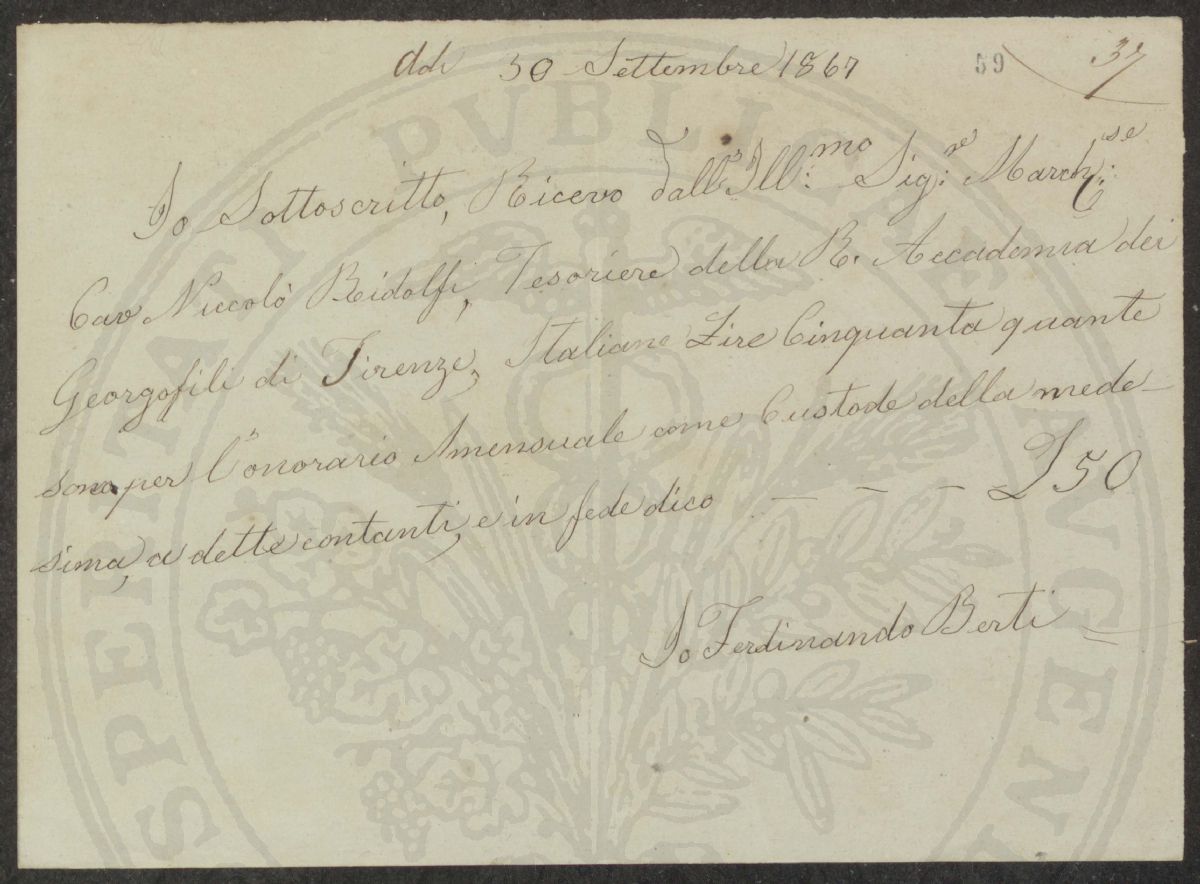 Adì 30 Settembre 1867
59
37
Io Sottoscritto, Ricevo dall' Ill:mo Sig:re March:se
Cav Niccolò Ridolfi, Tesoriere della R. Accademia dei
Georgofili di Firenze, Italiane Lire Cinquanta quante
sono per l'onorario mensuale come Custode della mede-
sima, a dette contanti, e in fede dico — — — £50
Io Ferdinando Berti
PROSPERITATI PVBLICAE AVGENDAE